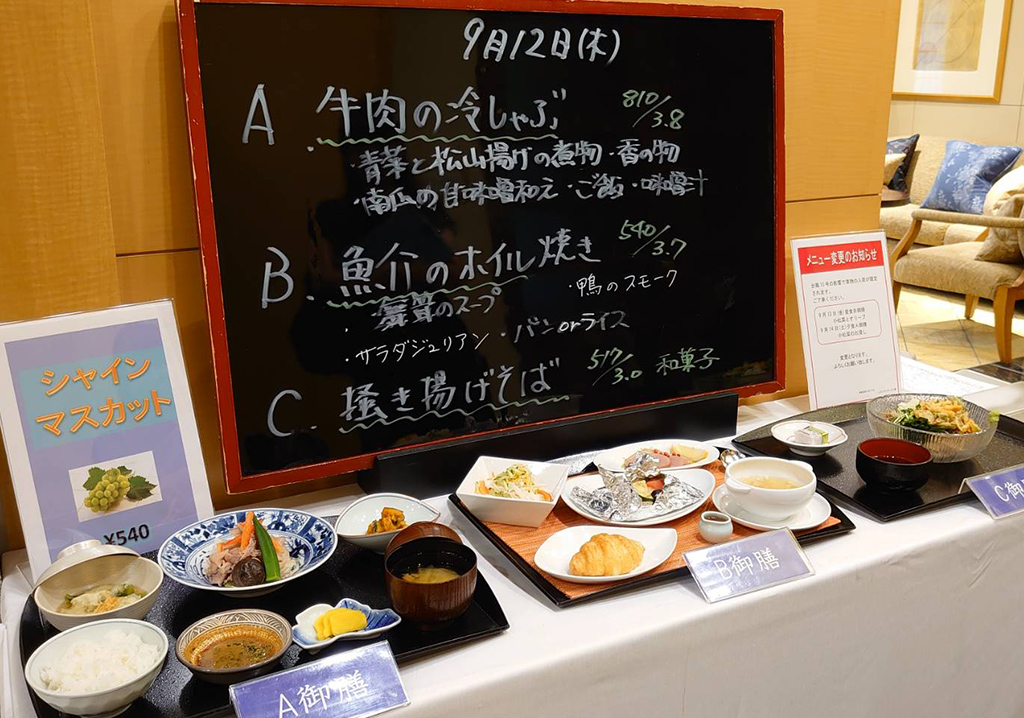 9月12日(木)
A. 牛肉の冷しゃぶ 810/3.8
・青菜と松山揚げの煮物・香の物
・南瓜の甘味噌和え・ご飯・味噌汁
B. 魚介のホイル焼き 540/3.7
のスープ ・鴨のスモーク
・サラダジュリアン・パンorライス
C. 掻き揚げそば 517/3.0 和菓子
シャイン
マスカット
¥540
メニュー変更のお知らせ
A御膳
B御膳
C御